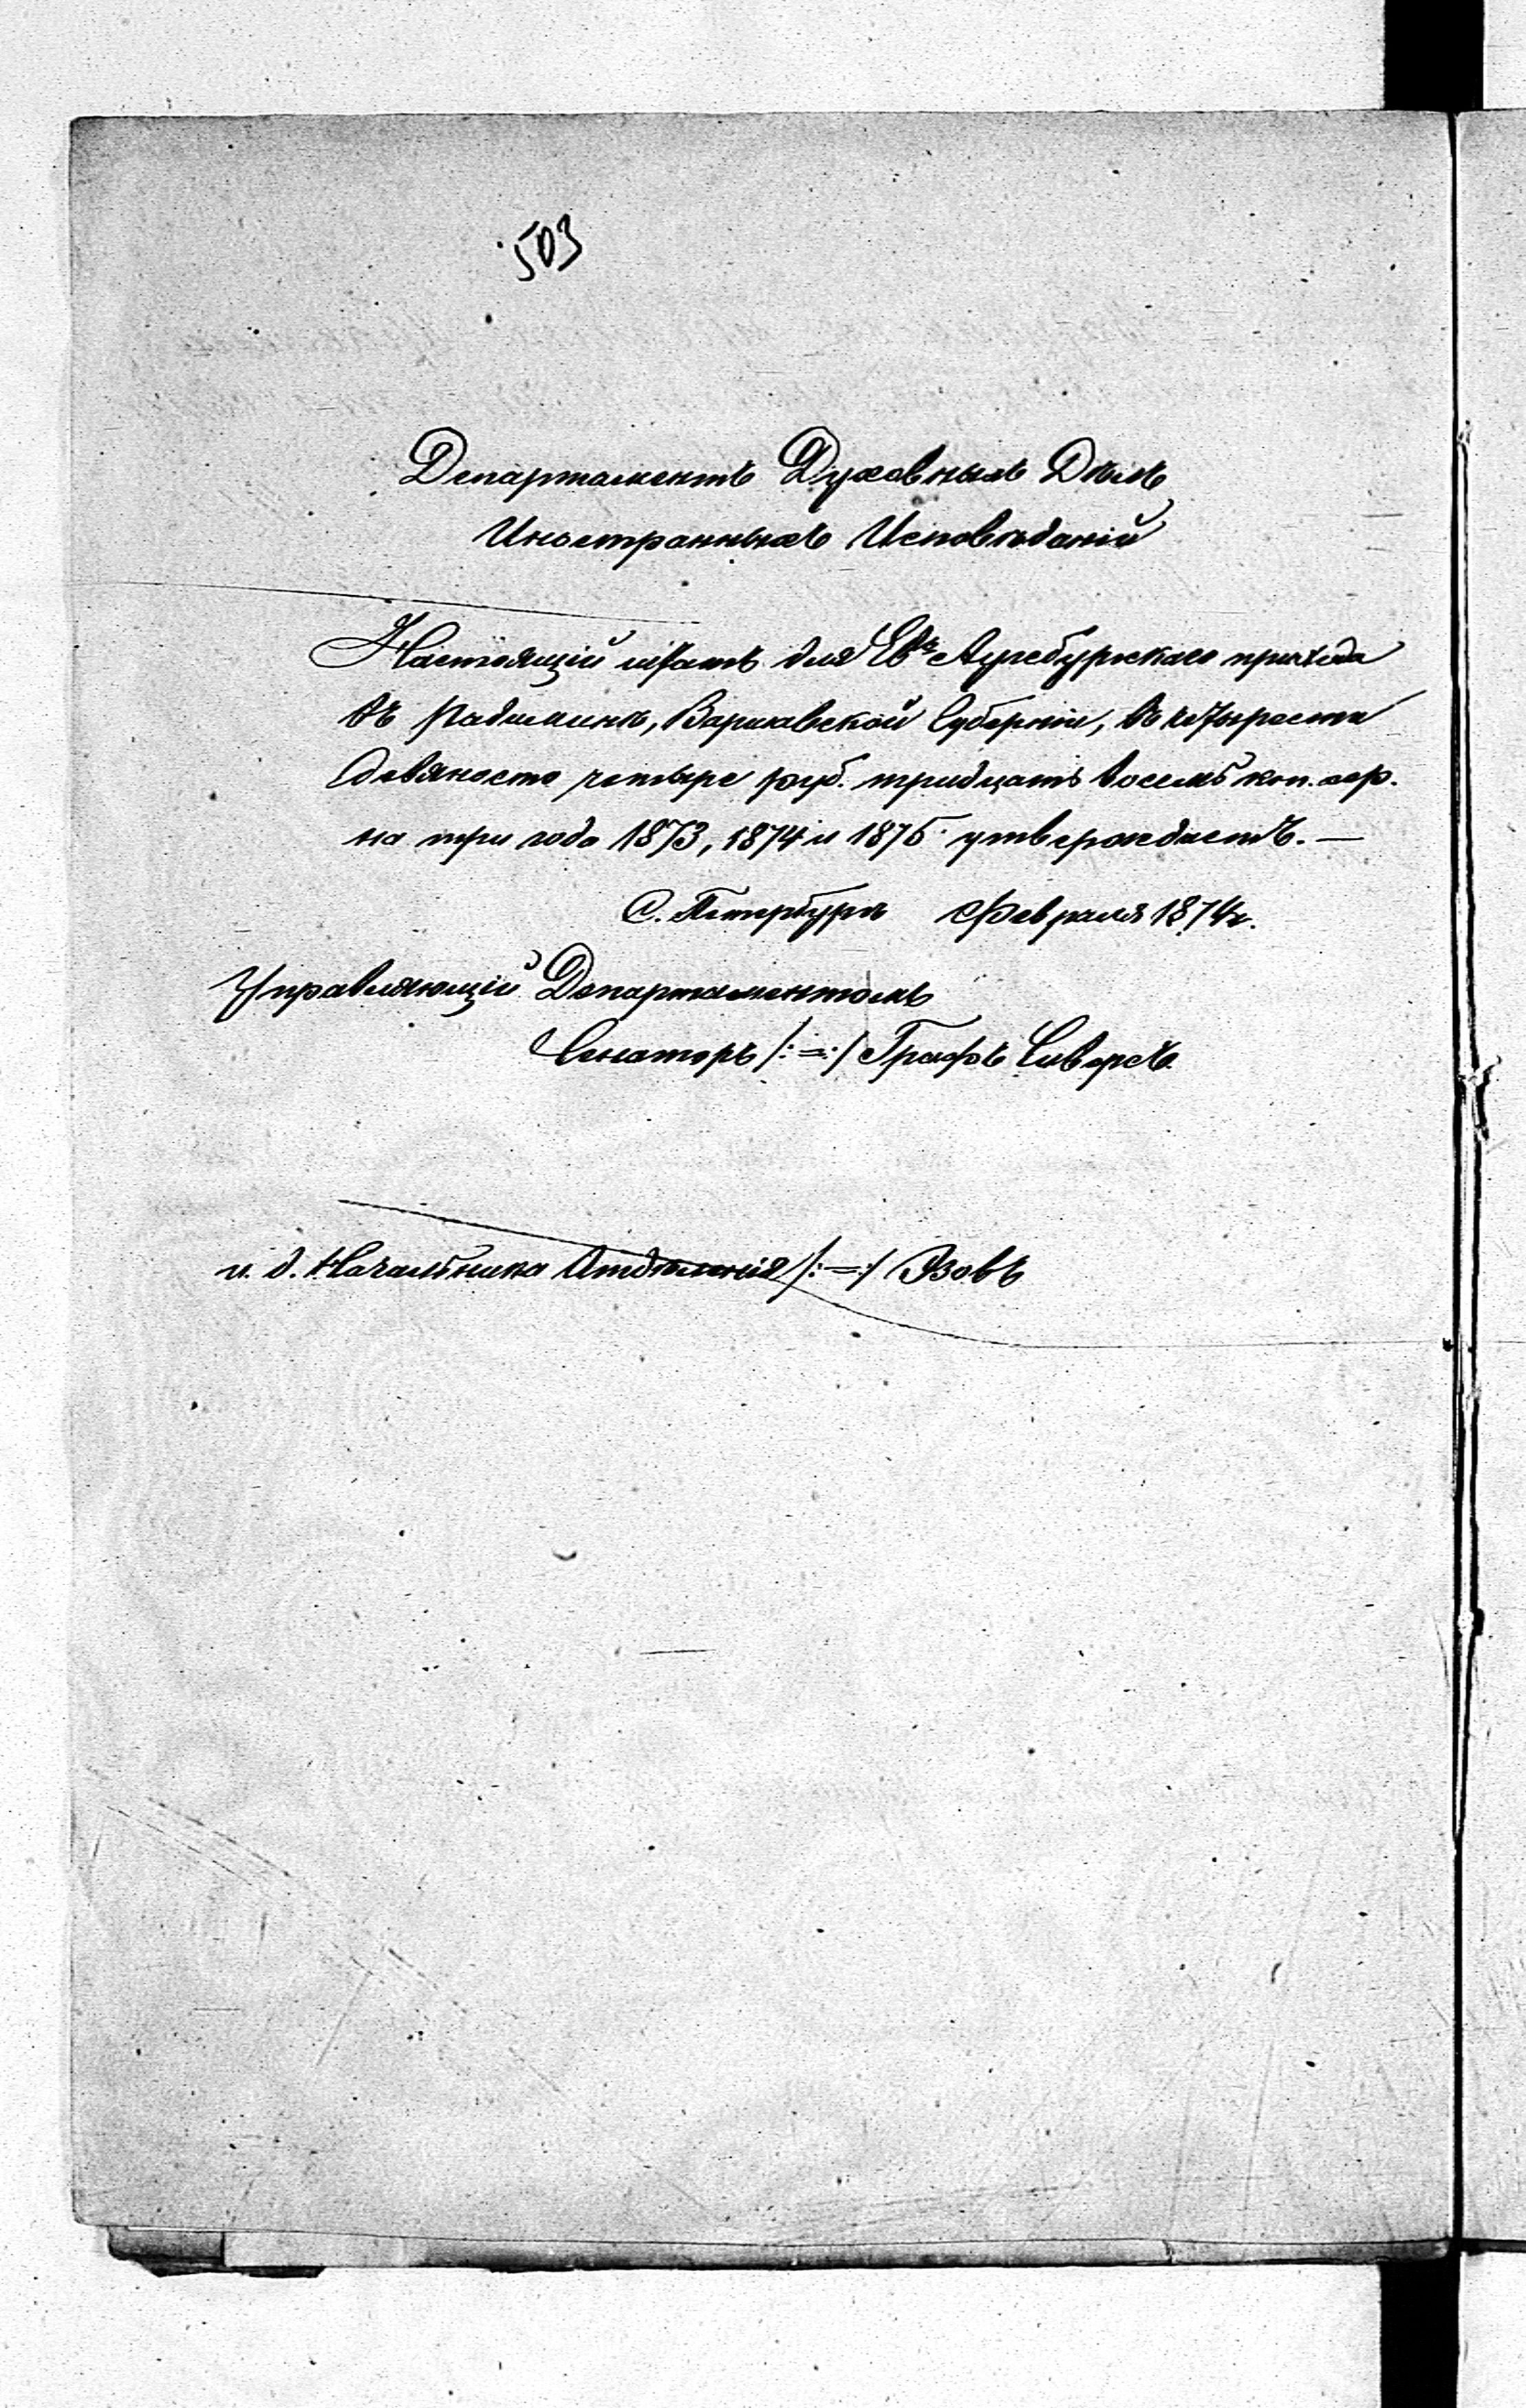 503
Департаментъ Духовныхъ Дѣлъ
Иностранныхъ Исповѣданій
Настоящій штатъ для Ев. Аугсбургскаго прихода
въ Радиминѣ, Варшавской Губерніи, въ четыреста
девяносто четыре руб. тридцать восемь коп. сер.
на три года 1873, 1874 и 1875 утверждаетъ. —
С. Петербургъ Февраля 1874 г.
Управляющій Департаментомъ
Сенаторъ /:=:/ Графъ Сиверсъ.
и. д. Начальника Отдѣленія /:=:/